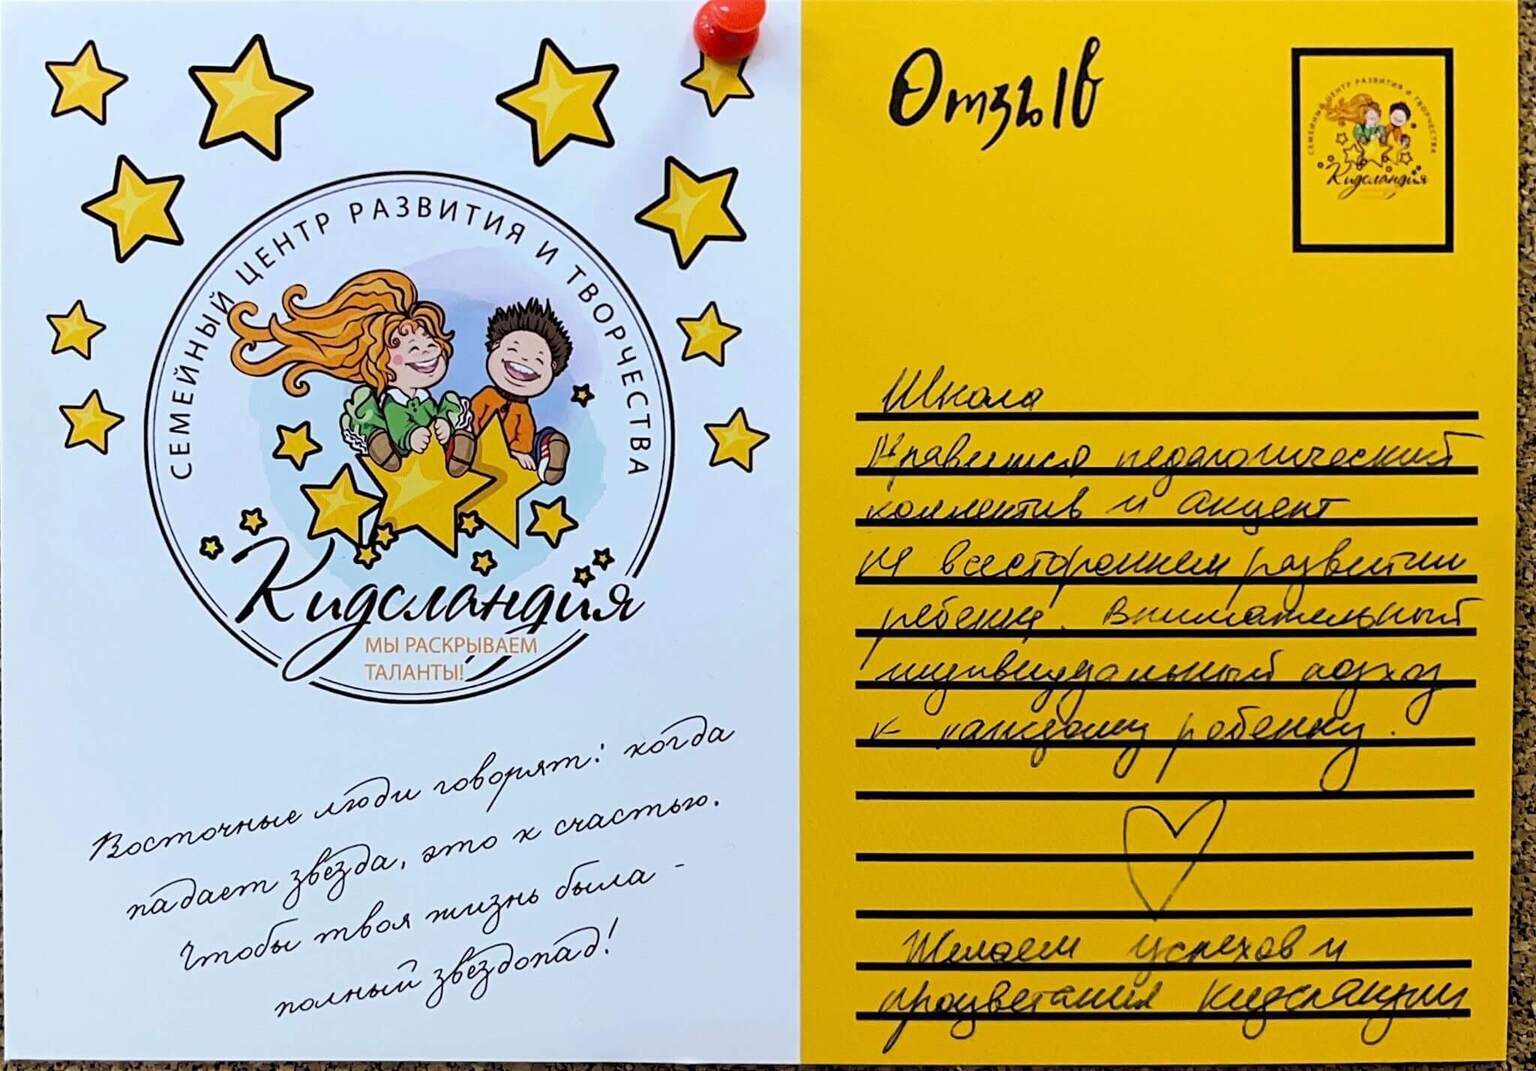 СЕМЕЙНЫЙ ЦЕНТР РАЗВИТИЯ И ТВОРЧЕСТВА
Кидсландия
МЫ РАСКРЫВАЕМ
ТАЛАНТЫ!
Восточные люди говорят: когда
падает звезда, это к счастью.
Чтобы твоя жизнь была -
полный звездопад!
Отзыв
СЕМЕЙНЫЙ ЦЕНТР РАЗВИТИЯ И ТВОРЧЕСТВА
Кидсландия
Школа
Нравится педагогический
коллектив и акцент
на всестороннем развитии
ребенка. Внимательный
индивидуальный подход
к каждому ребенку.
Желаем успехов и
процветания Кидсландии